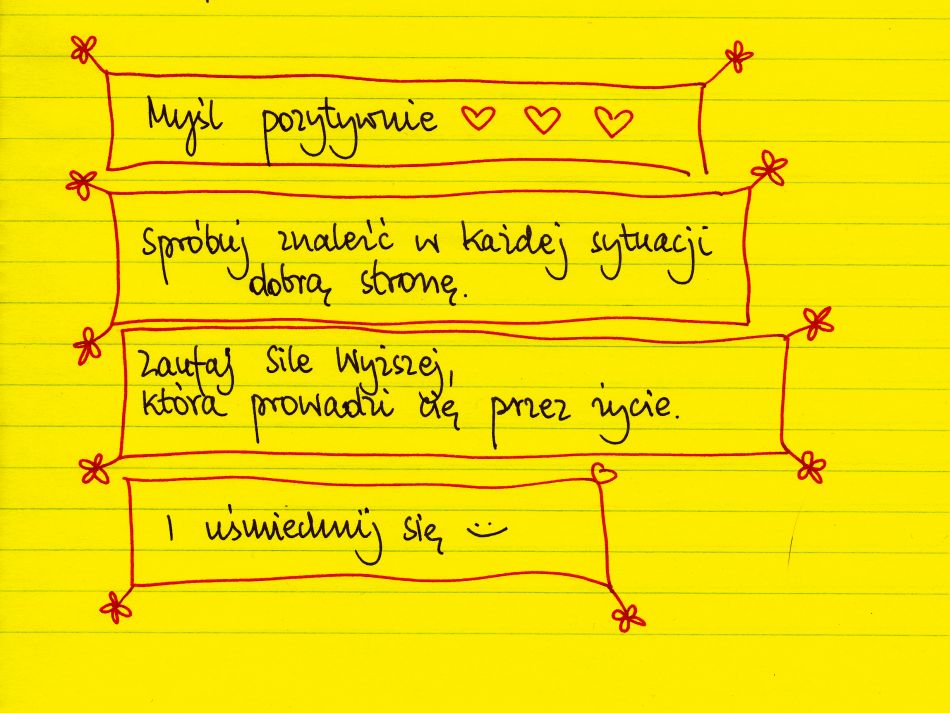 Myśl pozytywnie ♡ ♡ ♡
Spróbuj znaleźć w każdej sytuacji
dobrą stronę.
Zaufaj Sile Wyższej,
która prowadzi cię przez życie.
I uśmiechnij się